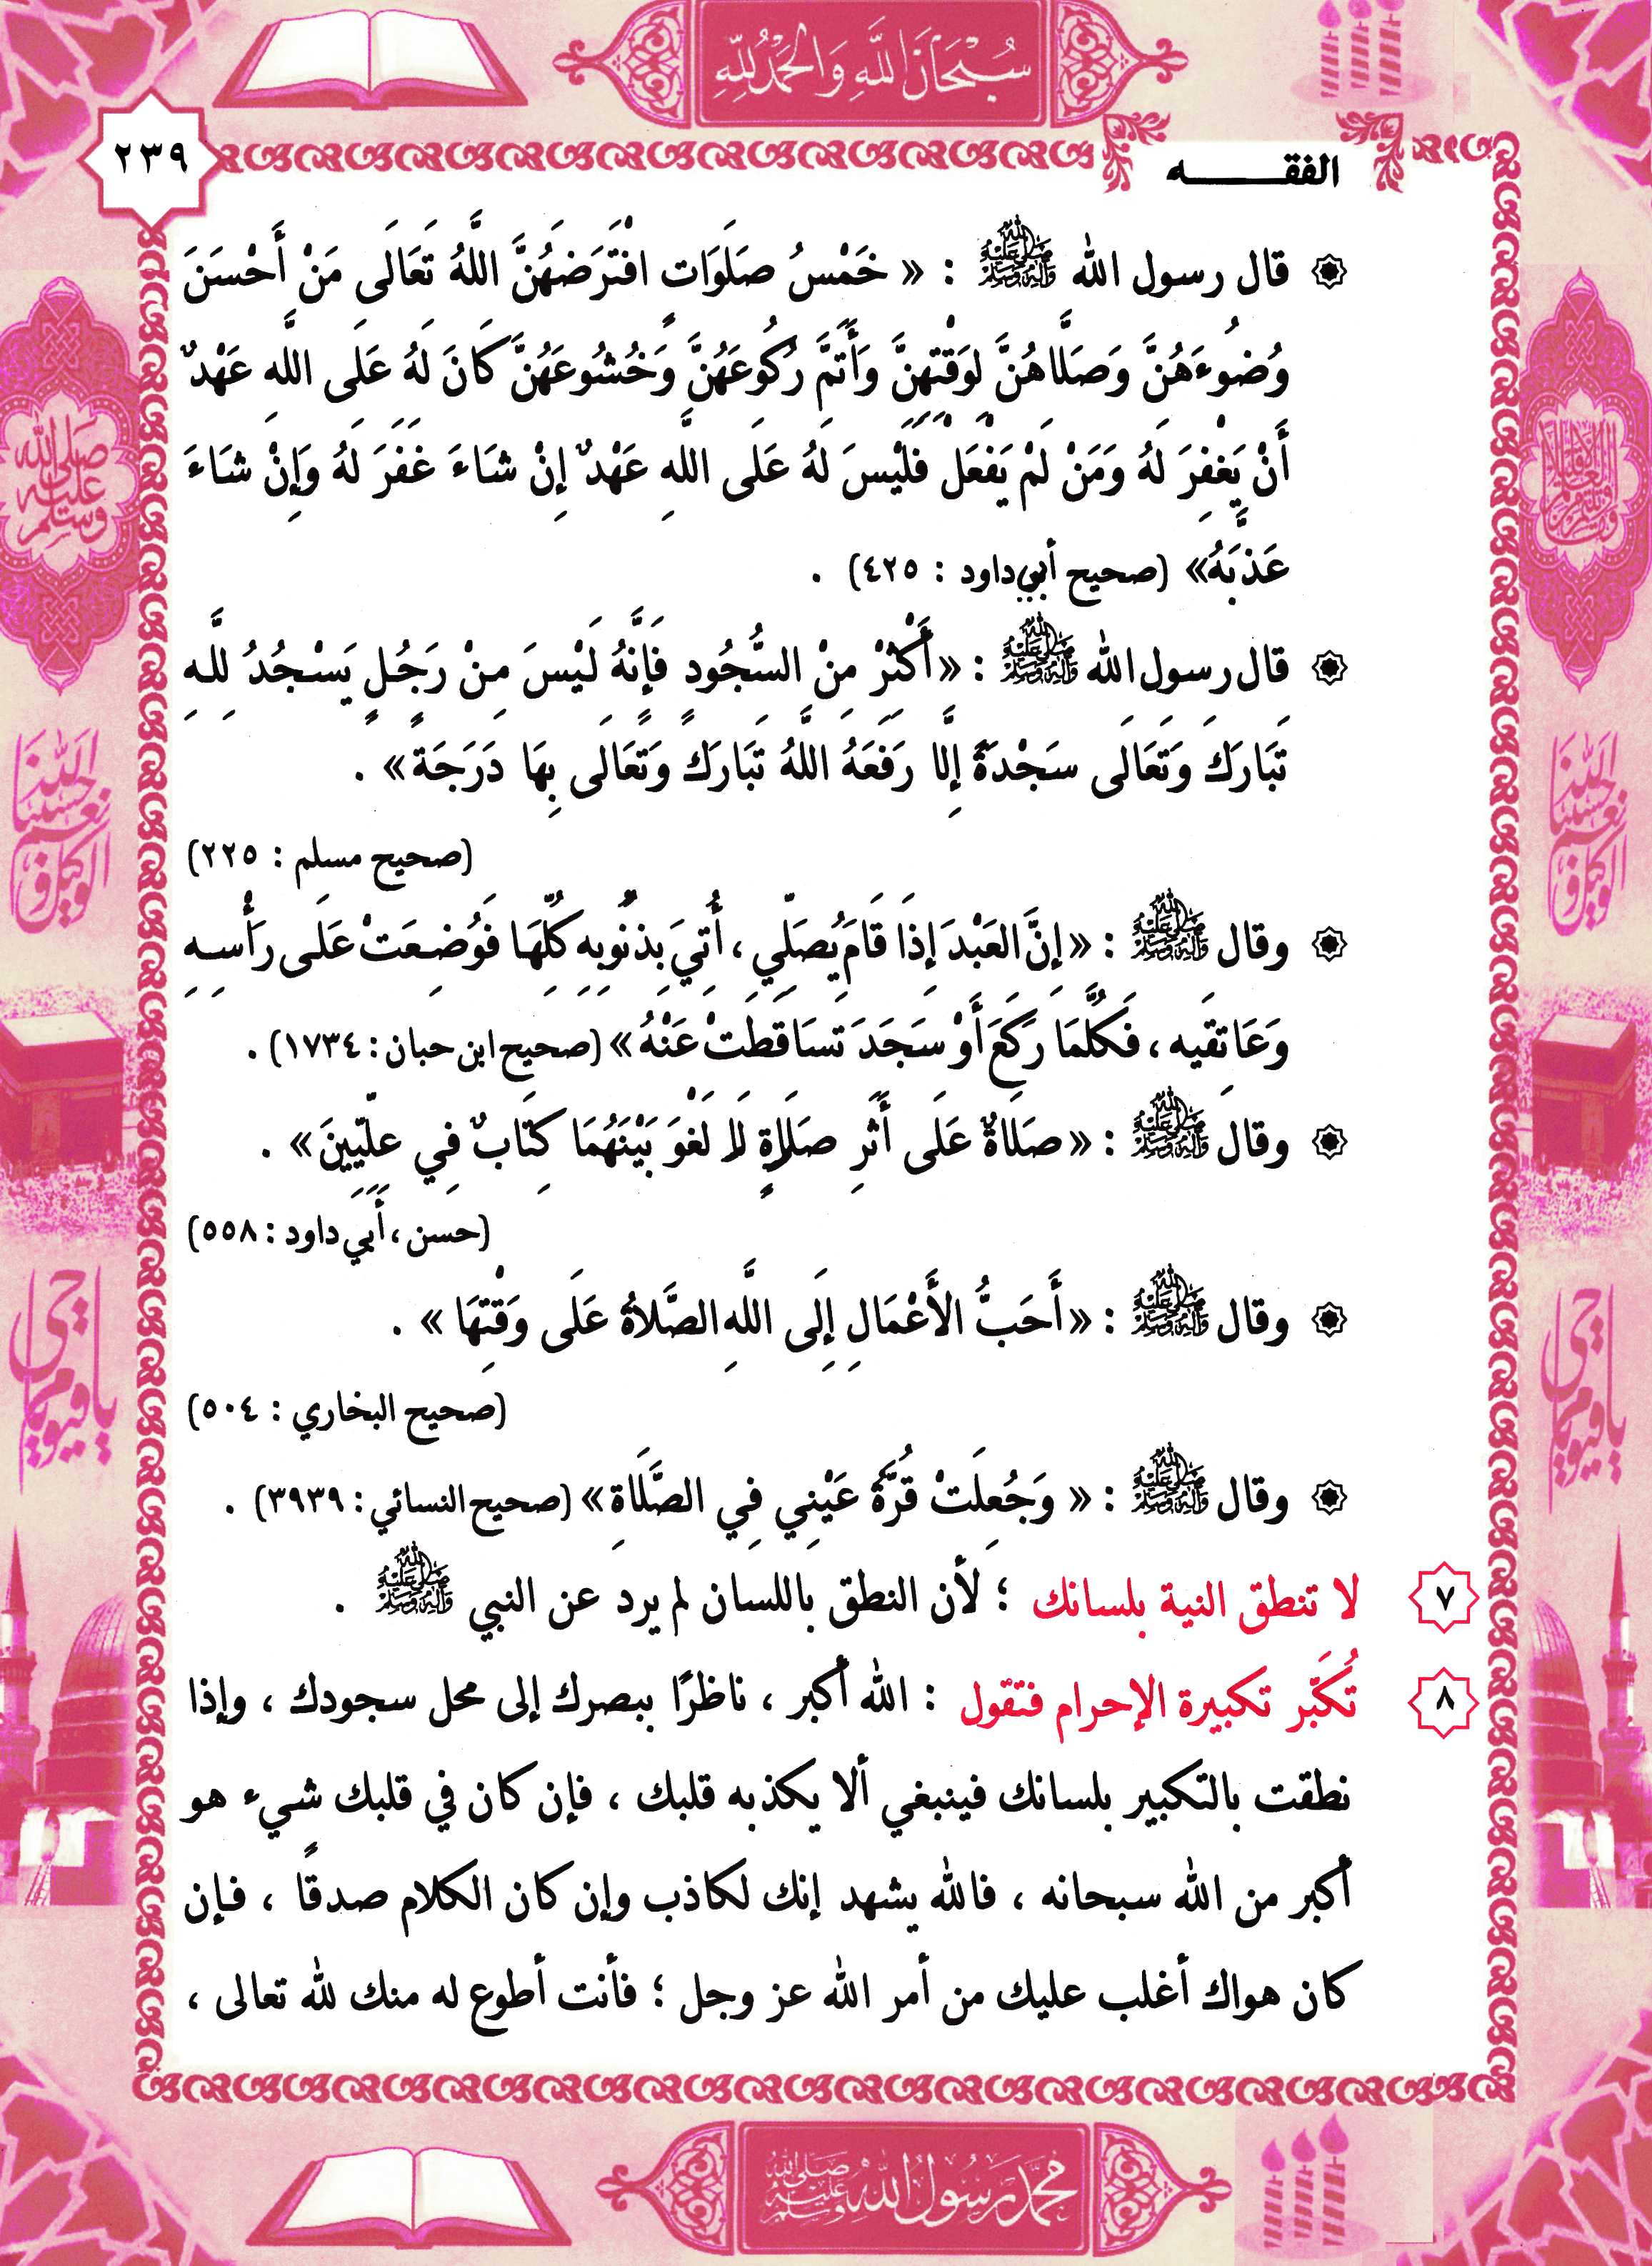 سُبْحَانَ اللَّهِ وَالْحَمْدُ لِلَّهِ
٢٣٩
الفقـــــــه
قال رسول الله ﷺ : « خَمْسُ صَلَوَاتٍ افْتَرَضَهُنَّ اللَّهُ تَعَالَى مَنْ أَحْسَنَ
وُضُوءَهُنَّ وَصَلَّاهُنَّ لِوَقْتِهِنَّ وَأَتَمَّ رُكُوعَهُنَّ وَخُشُوعَهُنَّ كَانَ لَهُ عَلَى اللَّهِ عَهْدٌ
أَنْ يَغْفِرَ لَهُ وَمَنْ لَمْ يَفْعَلْ فَلَيْسَ لَهُ عَلَى اللَّهِ عَهْدٌ إِنْ شَاءَ غَفَرَ لَهُ وَإِنْ شَاءَ
عَذَّبَهُ» (صحيح أبي داود : ٤٢٥) .
قال رسول الله ﷺ : «أَكْثِرْ مِنْ السُّجُودِ فَإِنَّهُ لَيْسَ مِنْ رَجُلٍ يَسْجُدُ لِلَّهِ
تَبَارَكَ وَتَعَالَى سَجْدَةً إِلَّا رَفَعَهُ اللَّهُ تَبَارَكَ وَتَعَالَى بِهَا دَرَجَةً» .
(صحيح مسلم : ٢٢٥)
وقال ﷺ : «إِنَّ العَبْدَ إِذَا قَامَ يُصَلِّي ، أُتِيَ بِذُنُوبِهِ كُلِّهَا فَوُضِعَتْ عَلَى رَأْسِهِ
وَعَاتِقَيه ، فَكُلَّمَا رَكَعَ أَوْ سَجَدَ تَسَاقَطَتْ عَنْهُ» (صحيح ابن حبان : ١٧٣٤) .
وقال ﷺ : «صَلَاةٌ عَلَى أَثَرِ صَلَاةٍ لَا لَغْوَ بَيْنَهُمَا كِتَابٌ فِي عِلِّيِّينَ» .
(حسن ، أبي داود : ٥٥٨)
وقال ﷺ : «أَحَبُّ الأَعْمَالِ إِلَى اللَّهِ الصَّلاةُ عَلَى وَقْتِهَا » .
(صحيح البخاري : ٥٠٤)
وقال ﷺ : « وَجُعِلَتْ قُرَّةُ عَيْنِي فِي الصَّلَاةِ» (صحيح النسائي : ٣٩٣٩) .
٧ لا تنطق النية بلسانك ؛ لأن النطق باللسان لم يرد عن النبي ﷺ .
٨ تُكَبّر تكبيرة الإحرام فتقول : الله أكبر ، ناظرًا ببصرك إلى محل سجودك ، وإذا
نطقت بالتكبير بلسانك فينبغي ألا يكذبه قلبك ، فإن كان في قلبك شيء هو
أكبر من الله سبحانه ، فالله يشهد إنك لكاذب وإن كان الكلام صدقًا ، فإن
كان هواك أغلب عليك من أمر الله عز وجل ؛ فأنت أطوع له منك لله تعالى ،
صلى الله عليه وسلم
حسبنا الله ونعم الوكيل
يا حي يا قيوم
حسبنا الله ونعم الوكيل
يا حي يا قيوم
محمد رسول الله صلى الله عليه وسلم